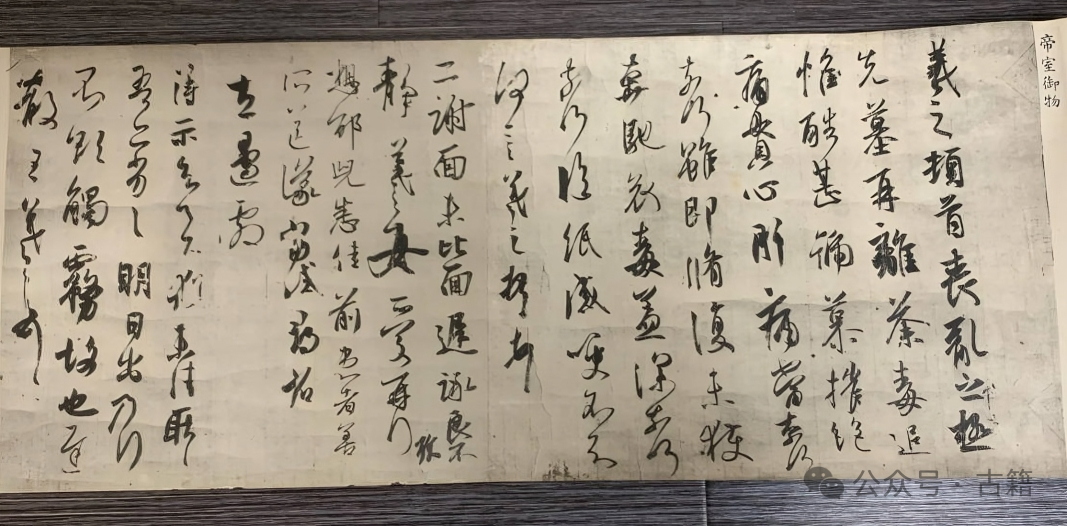 帝室御物
羲之頓首喪亂之極
先墓再離荼毒追
惟酷甚號慕摧絶
痛貫心肝痛當奈何
奈何雖即脩復未獲
奔馳哀毒益深奈何
奈何臨紙感哽不知
何言羲之頓首頓首
二謝面未比面遲詠良不
靜羲之女愛再拜
想邵兒悉佳前患者善
所送議當試尋省
左邊劇
得示知足下猶未佳耿耿
吾亦劣劣明日出乃行
不欲觸霧故也遲
散王羲之頓首
公众号·古籍